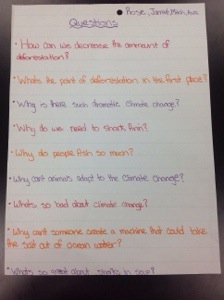 Rosie, Jarret, Mish, Ava
Questions
• How can we decrease the ammount of
deforestation?
• Whats the point of deforestation in the first place?
• Why is there such dramatic climate change?
• Why do we need to shark finn?
• Why do people fish so much?
• Why cant animals adapt to the climate change?
• Whats so bad about climate change?
• Why cant someone create a machine that could take
the salt out of ocean water?
• Whats so great about sharks in soup?